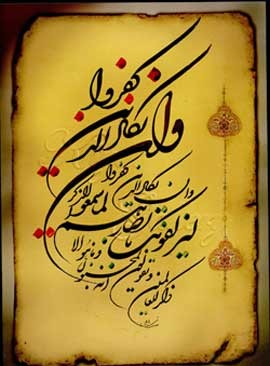 وان یکاد الذین کفروا
وان یکاد الذین کفروا
لیزلقونک بابصارهم
لما سمعوا الذکر
ویقولون انه لمجنون
وما هو الا
ذکر للعالمین